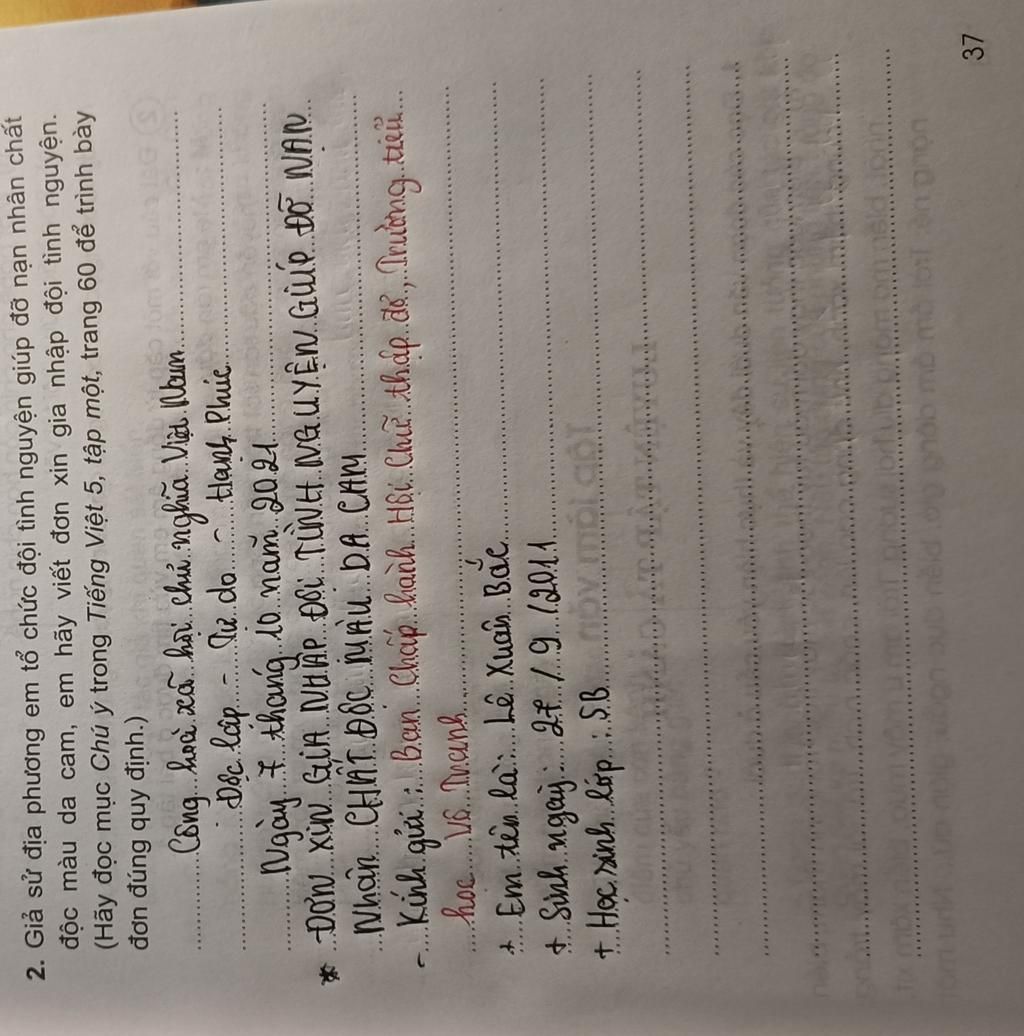 2. Giả sử địa phương em tổ chức đội tình nguyện giúp đỡ nạn nhân chất
độc màu da cam, em hãy viết đơn xin gia nhập đội tình nguyện.
(Hãy đọc mục Chú ý trong Tiếng Việt 5, tập một, trang 60 để trình bày
đơn đúng quy định.)
Cộng hoà xã hội chủ nghĩa Việt Nam
Độc lập - Tự do - Hạnh Phúc
Ngày 7 tháng 10 năm 2021
* ĐƠN XIN GIA NHẬP ĐỘI TÌNH NGUYỆN GIÚP ĐỠ NẠN
NHÂN CHẤT ĐỘC MÀU DA CAM
- Kính gửi: Ban Chấp hành Hội Chữ thập đỏ, Trường tiểu
học Võ Tranh
+ Em tên là: Lê Xuân Bắc
+ Sinh ngày: 27 / 9 /2011
+ Học sinh lớp: 5B
37